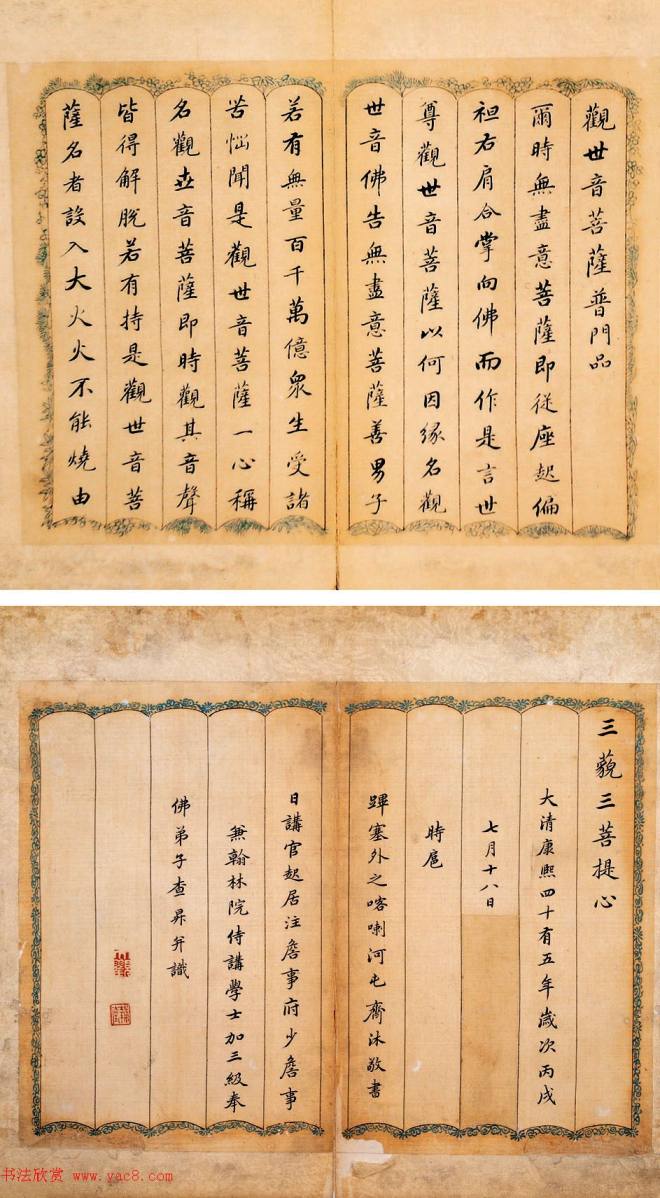 觀世音菩薩普門品
爾時無盡意菩薩即從座起偏
袒右肩合掌向佛而作是言世
尊觀世音菩薩以何因緣名觀
世音佛告無盡意菩薩善男子
若有無量百千萬億衆生受諸
苦惱聞是觀世音菩薩一心稱
名觀世音菩薩即時觀其音聲
皆得解脫若有持是觀世音菩
薩名者設入大火火不能燒由
三藐三菩提心
大清康熙四十有五年歲次丙戌
七月十八日
時扈
蹕塞外之喀喇河屯齋沐敬書
日講官起居注詹事府少詹事
兼翰林院侍講學士加三級奉
佛弟子查昇并識
书法欣赏 www.yac8.com